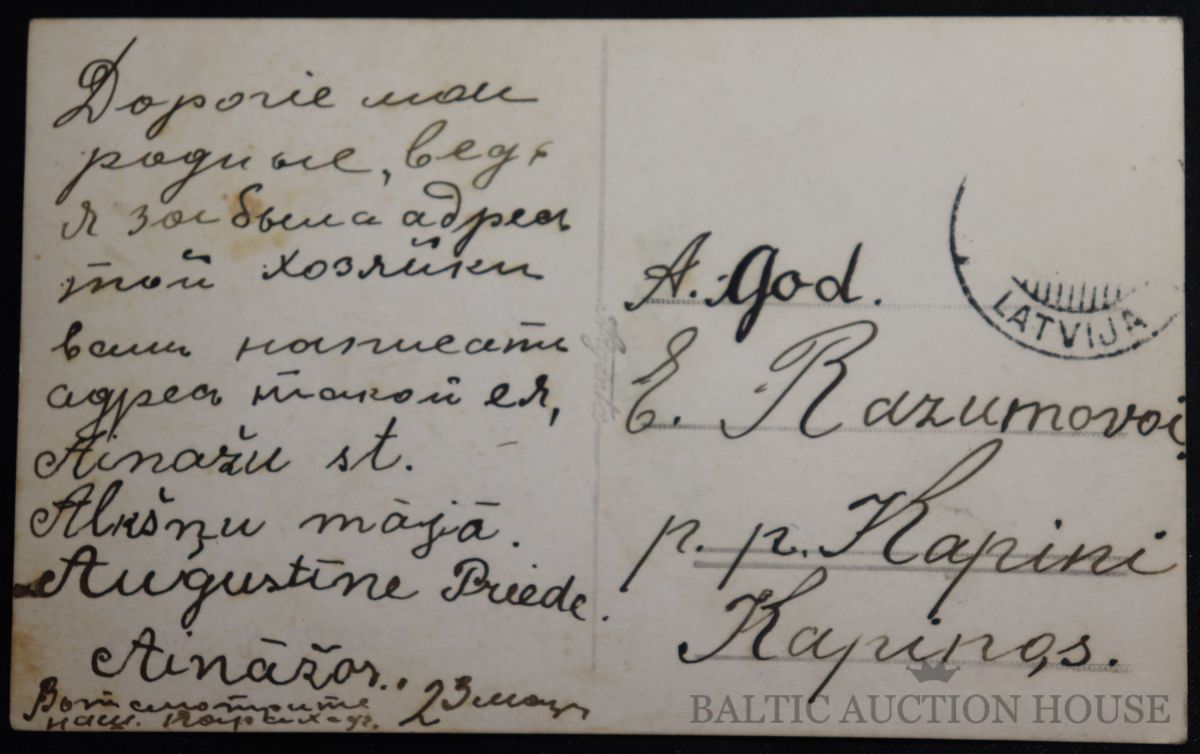 Дорогіе мои
родные, ведь
я забыла адрес
той хозяйки
вам написать
адрес такой ея,
Ainažu st.
Alkšņu mājā.
Augustīne Priede.
Ainažos.
Вот смотрите
наш.
23 мая
A. God.
E. Razumovoi
p. p. Kapini
Kapinos.
LATVIJA
BALTIC AUCTION HOUSE